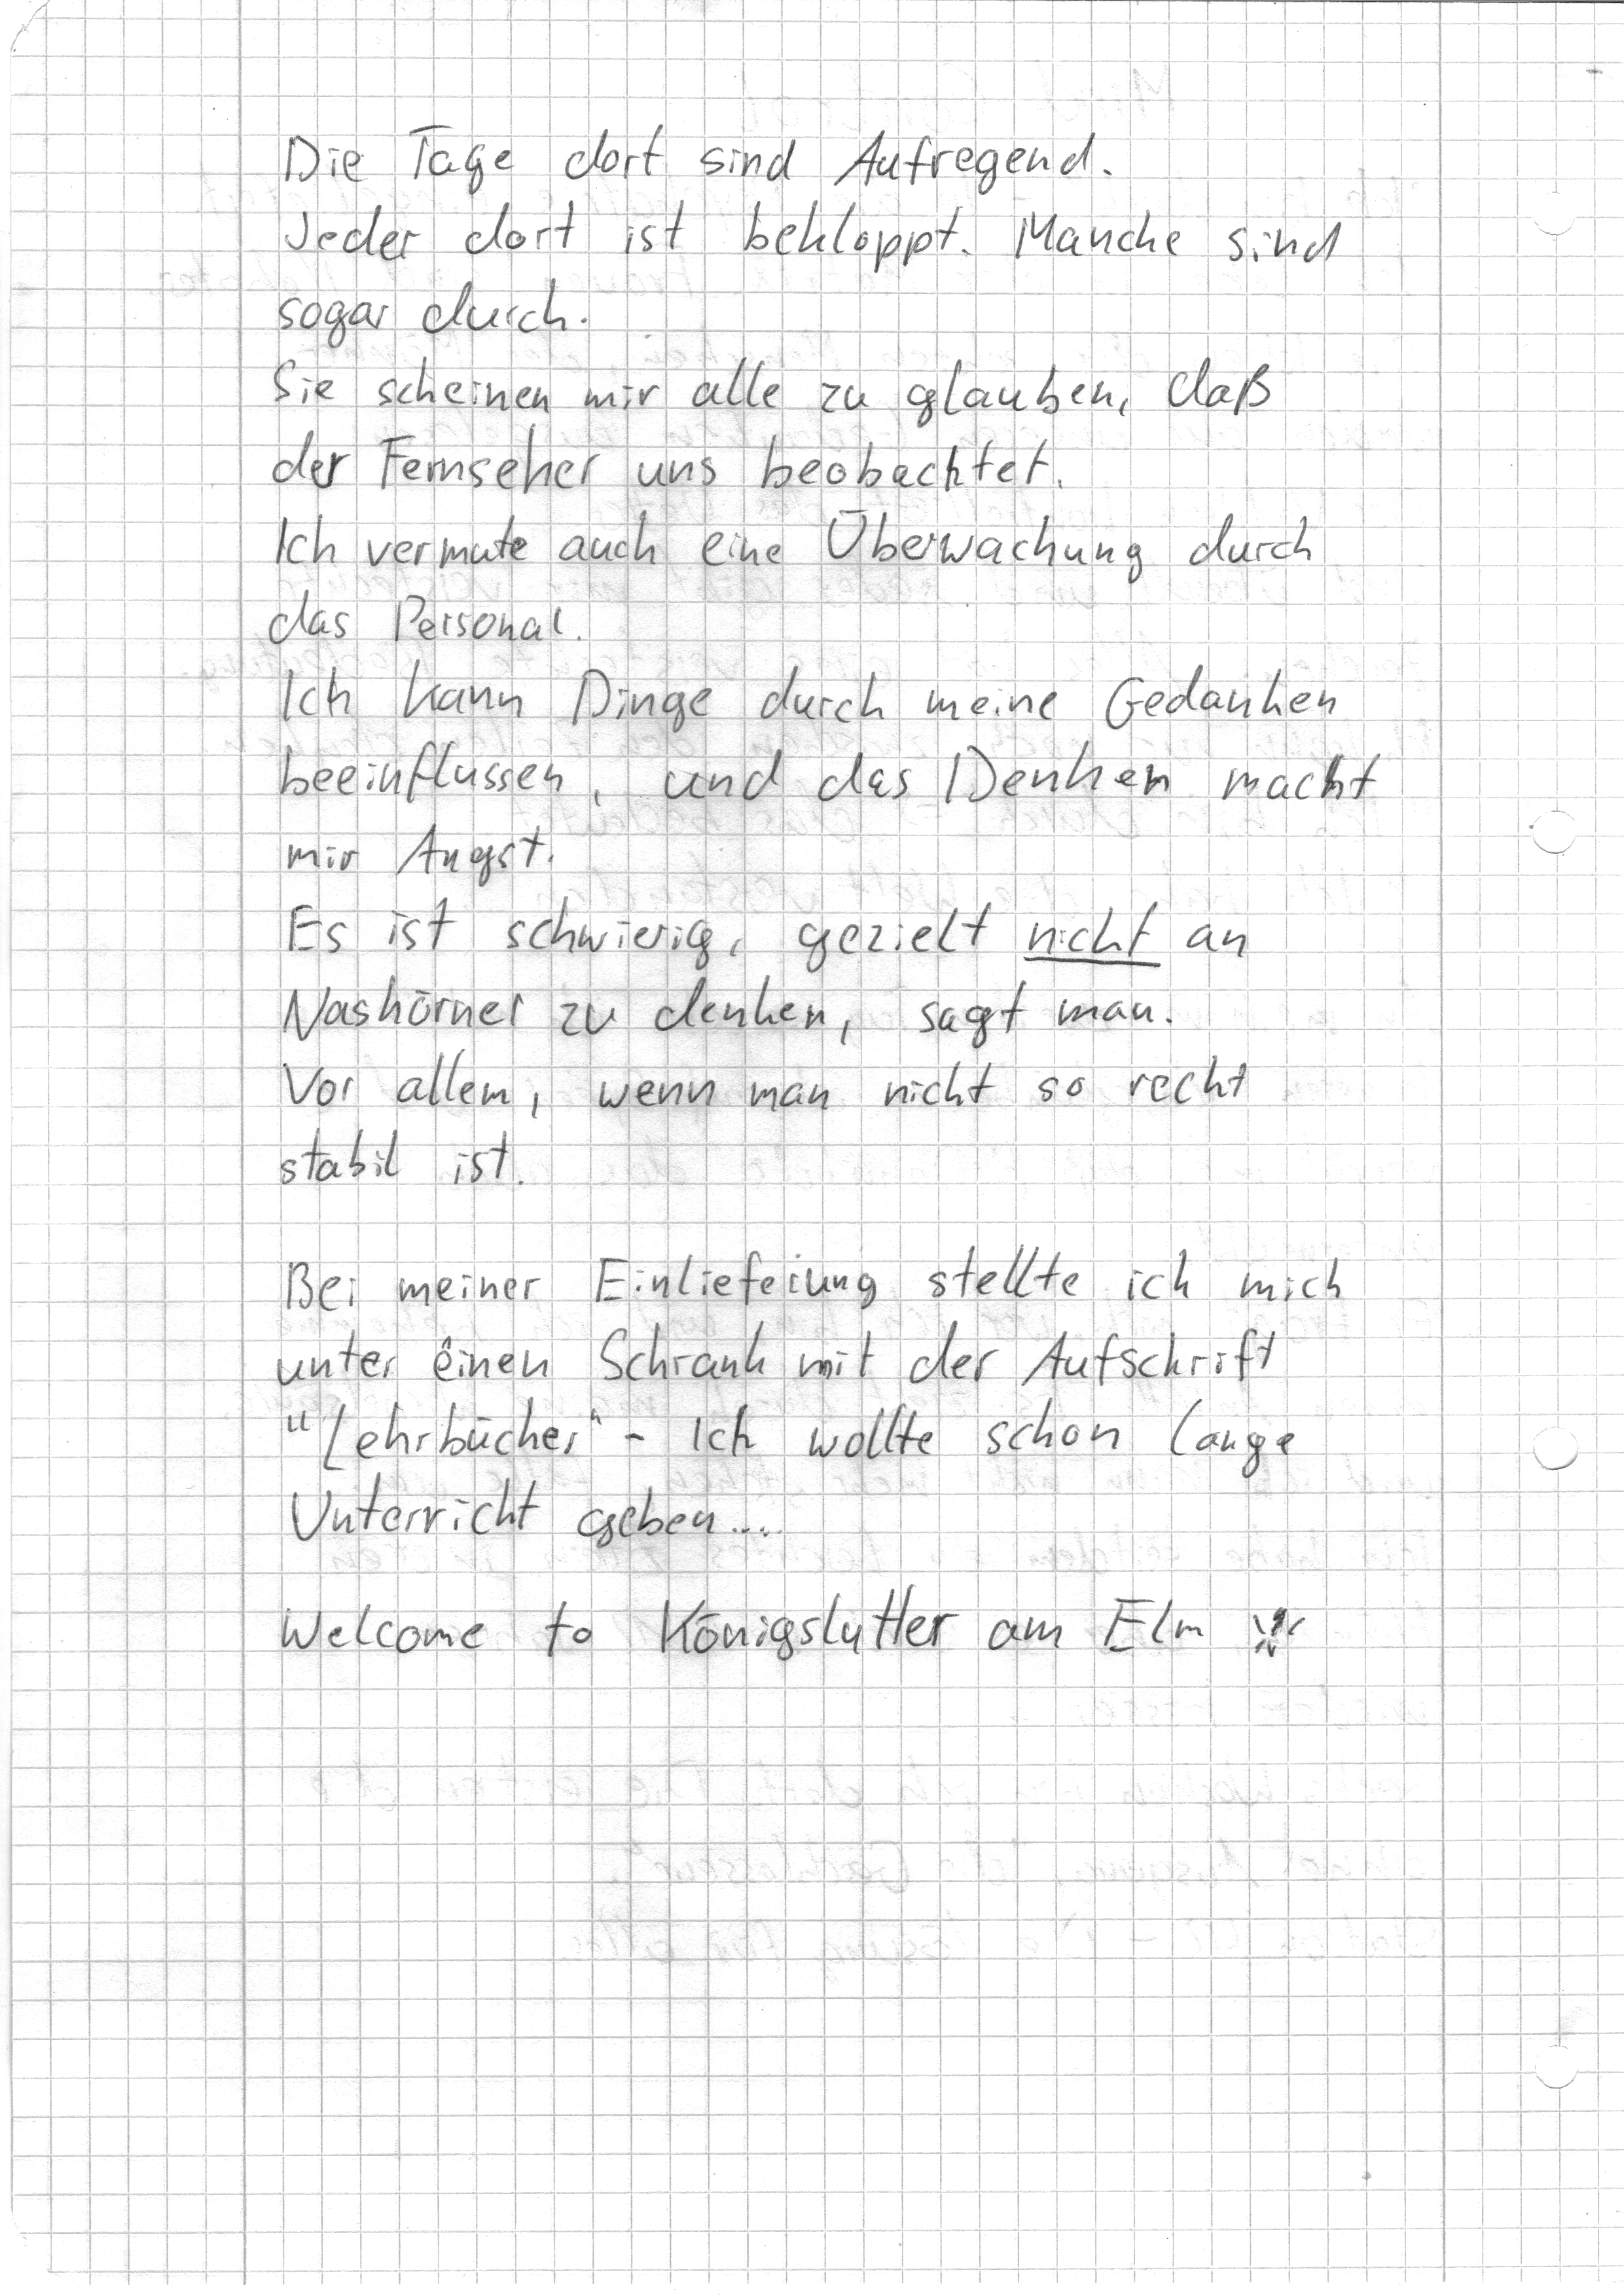 Die Tage dort sind Aufregend.
Jeder dort ist bekloppt. Manche sind
sogar durch.
Sie scheinen mir alle zu glauben, daß
der Fernseher uns beobachtet.
Ich vermute auch eine Überwachung durch
das Personal.
Ich kann Dinge durch meine Gedanken
beeinflussen, und das Denken macht
mir Angst.
Es ist schwierig, gezielt nicht an
Nashörner zu denken, sagt man.
Vor allem, wenn man nicht so recht
stabil ist.
Bei meiner Einlieferung stellte ich mich
unter einen Schrank mit der Aufschrift
"Lehrbücher" - Ich wollte schon lange
Unterricht geben....
Welcome to Königslutter am Elm